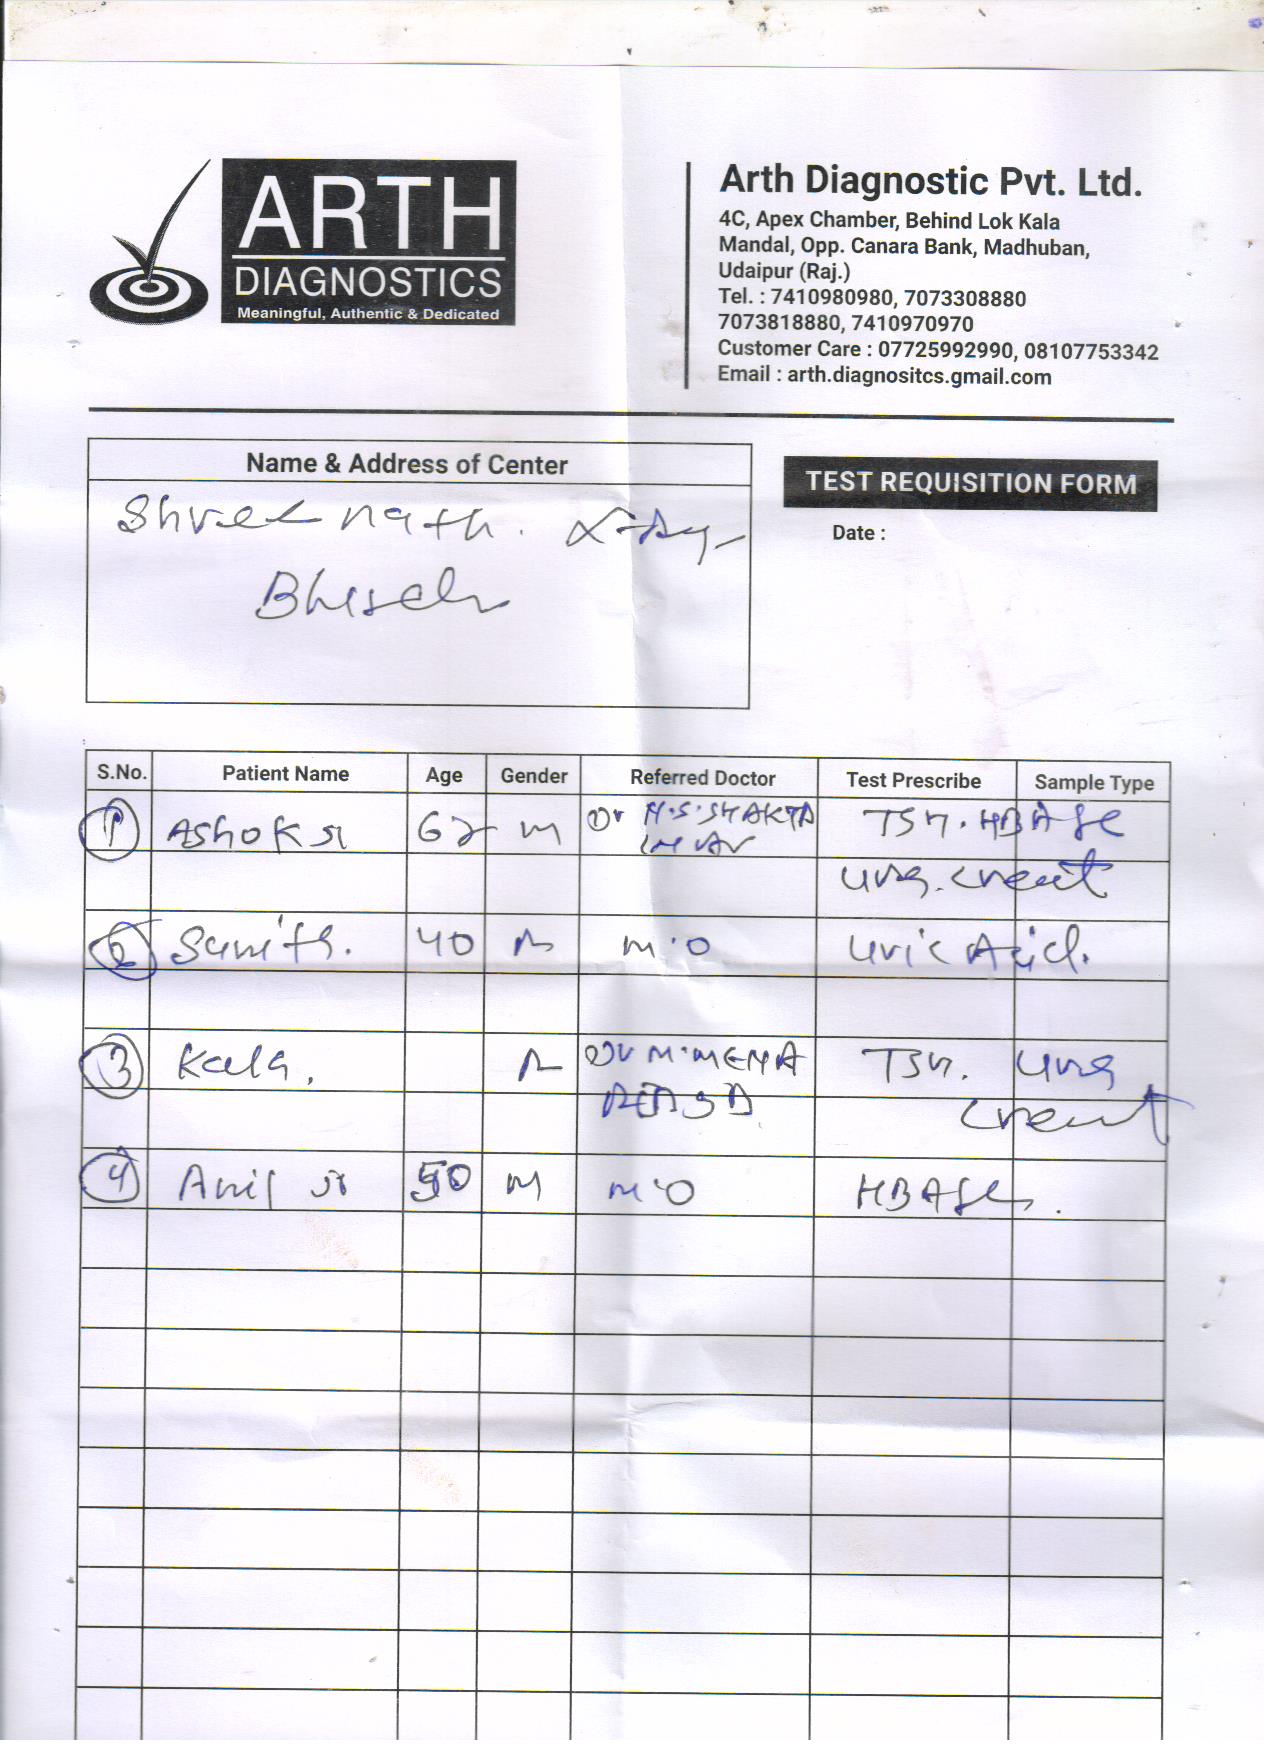 ARTH
DIAGNOSTICS
Meaningful, Authentic & Dedicated
Arth Diagnostic Pvt. Ltd.
4C, Apex Chamber, Behind Lok Kala
Mandal, Opp. Canara Bank, Madhuban,
Udaipur (Raj.)
Tel. : 7410980980, 7073308880
7073818880, 7410970970
Customer Care : 07725992990, 08107753342
Email : arth.diagnositcs.gmail.com
Name & Address of Center
Shree nath. X-Ray
TEST REQUISITION FORM
Date :
S.No. Patient Name Age Gender Referred Doctor Test Prescribe Sample Type
1 ASHOK 62 M Dr H.S. TSH.
creat
2 40 M.O Uric Acid.
3 Kala. Dr M. TSH.
creat
4 Anil 50 M M.O